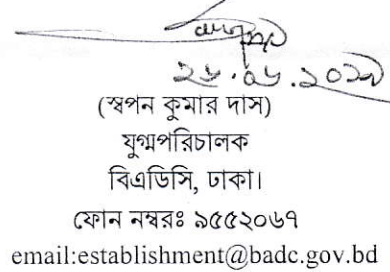 (স্বপন কুমার দাস)
যুগ্মপরিচালক
বিএডিসি, ঢাকা।
ফোন নম্বরঃ ৯৫৫২০৬৭
email:establishment@badc.gov.bd